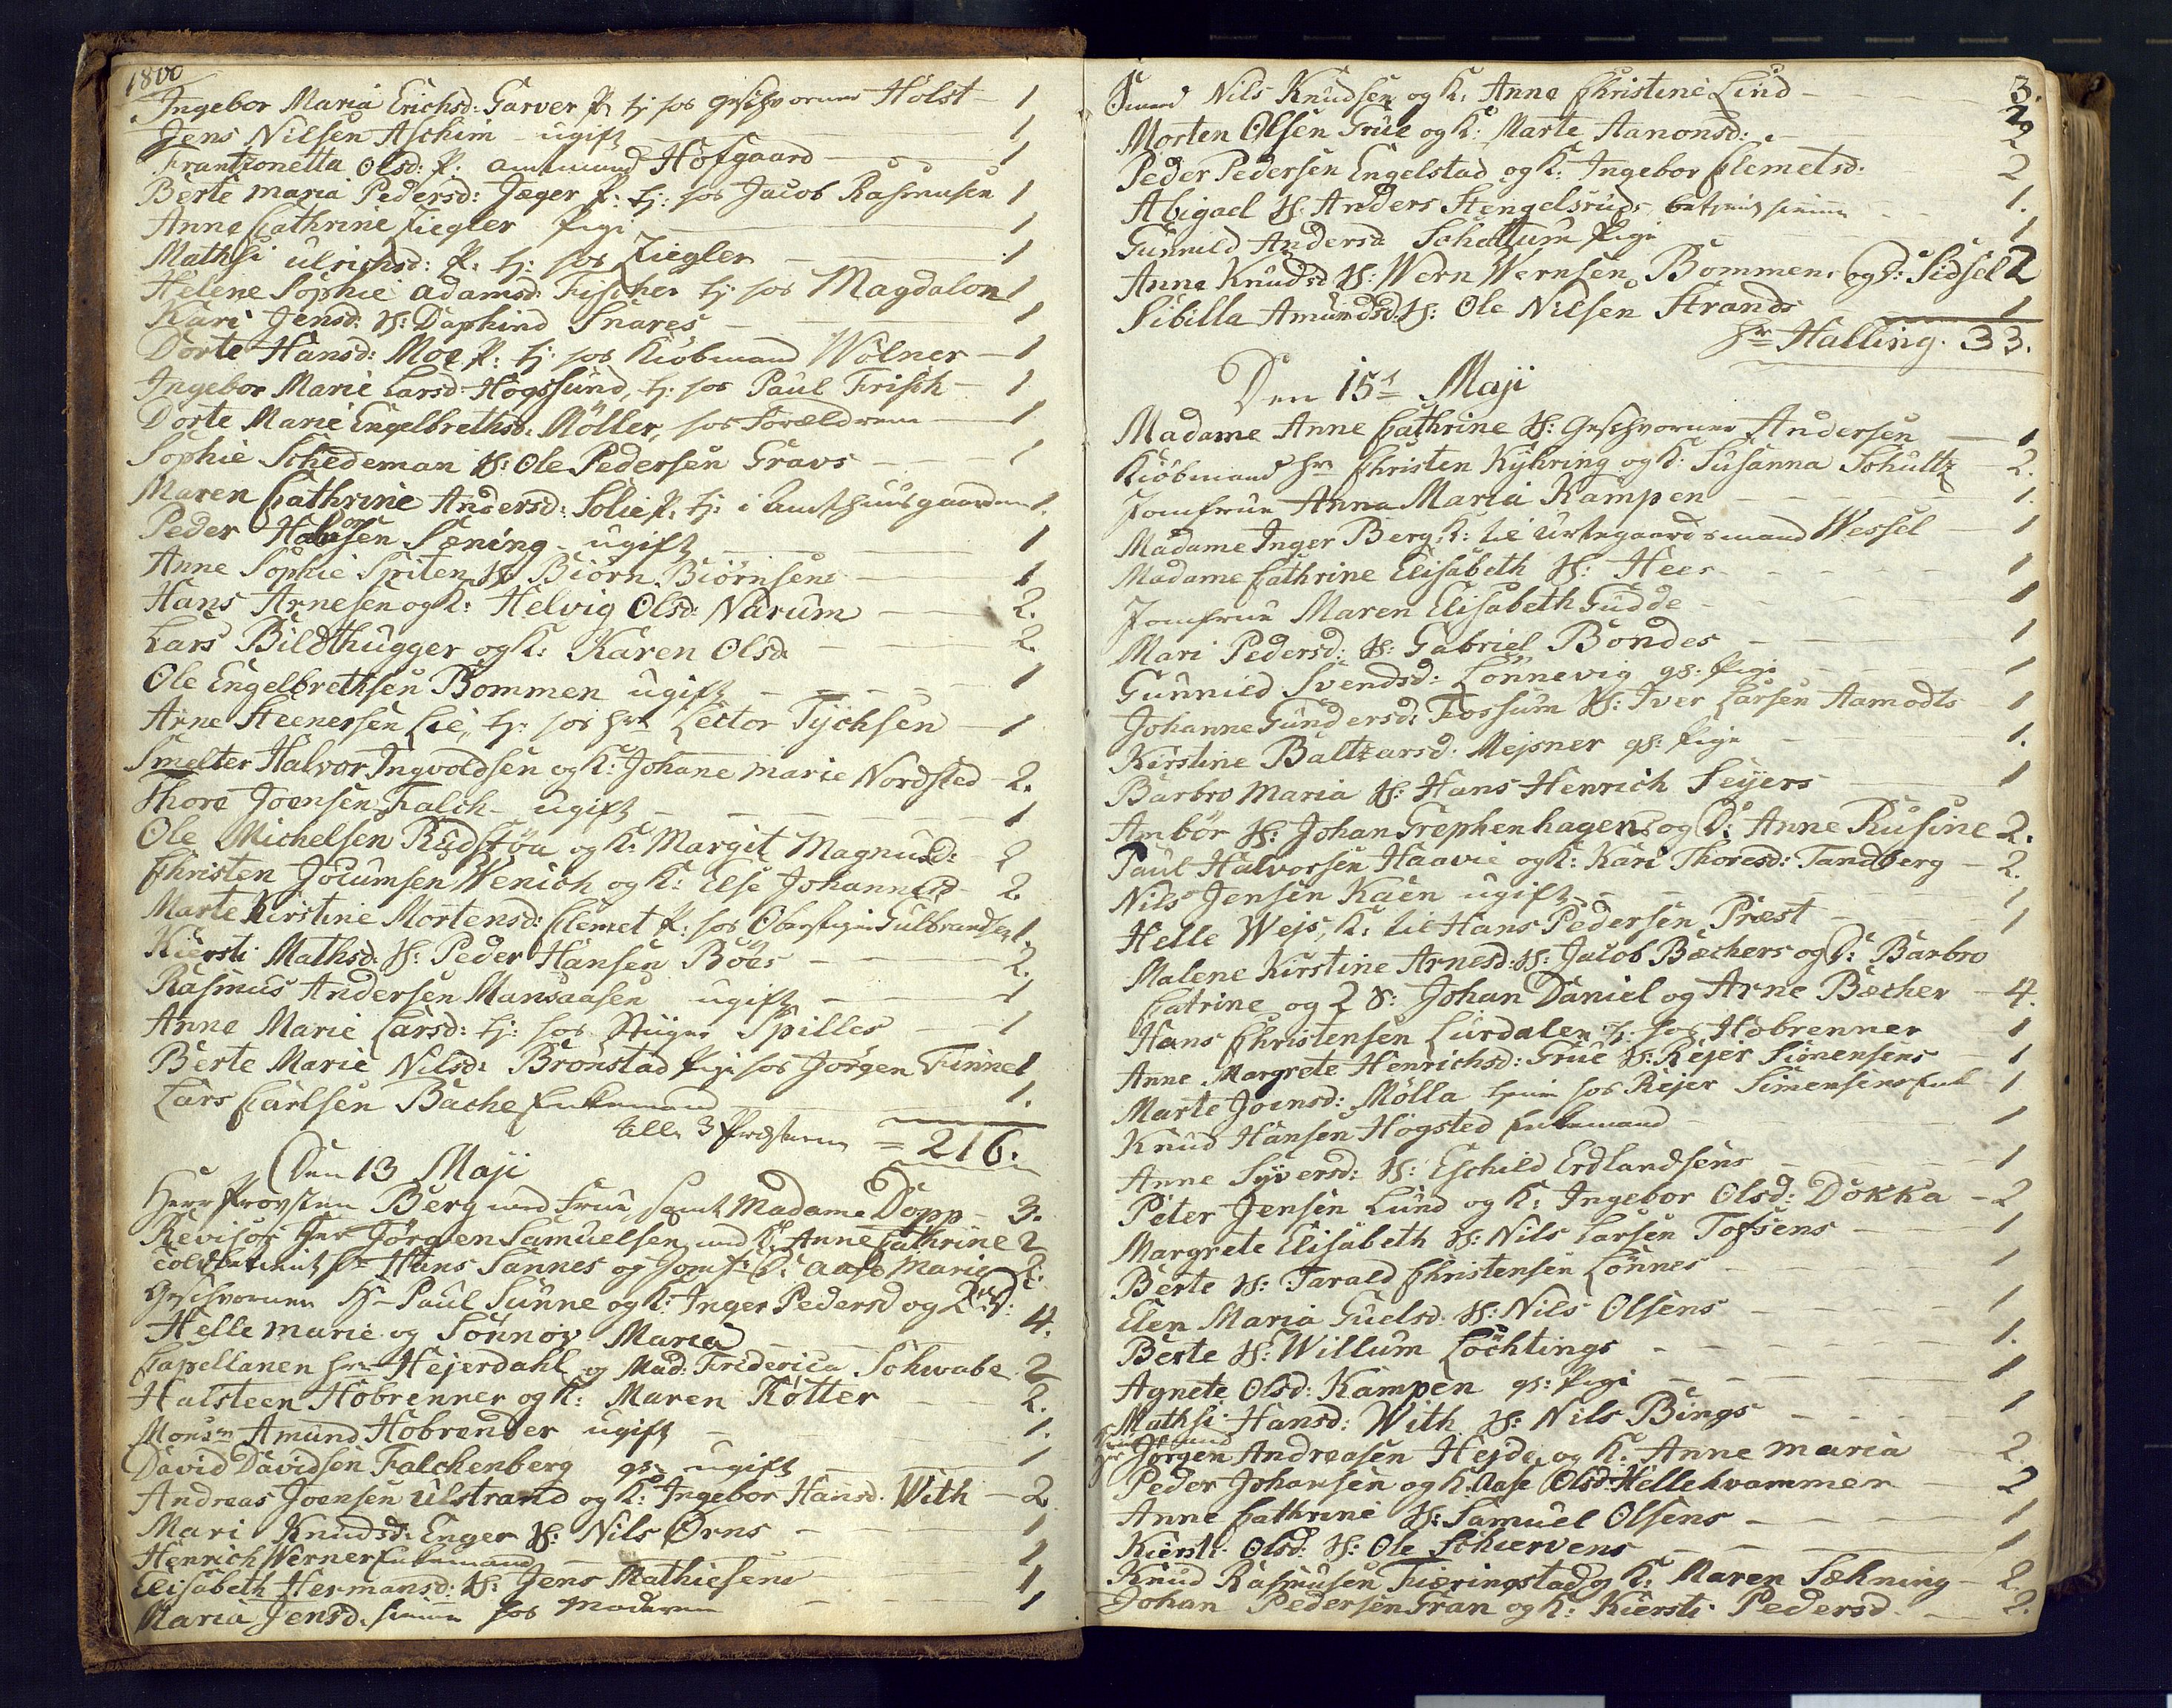 1800
Ingebor Maria Erichsd: Garver P. tj hos Geschworner Holst - 1
Jens Nilsen Aschim - ugift 1
Frantzonetta Olsd: P. Amtmand Hofgaard 1
Berte Maria Pedersd: Jæger P: tj: hos Jacob Rasmusen 1
Anne Cathrine Ziegler Pige 1
Mathsi Ulrichsd: P. tj: hos Ziegler 1
Helene Sophie Adamsd: Fischer tj hos Magdalon 1
Kari Jensd: H: Daphind Snares 1
Dorte Hansd: Moe P: tj: hos Kiøbmand Wölner - 1
Ingebor Marie Larsd: Hogssund, tj: hos Paul Frisch - 1
Dorte Marie Engelbrethsd: Möller, hos Forældrene 1
Sophie Schedeman H: Ole Pedersen Gravs 1
Maren Cathrine Andersd: Solie P. tj: i Amthuusgaarden 1.
Peder Sæning - ugift 1
Anne Sophie Spriten H: Biörn Biörnsens 1
Hans Arnesen og K: Helvig Olsd: Narum 2.
Lars Bildthugger og K: Karen Olsd 2.
Ole Engelbrethsen Bommen ugift 1
Arne Steenersen Lie, tj: hos Hr Lector Tychsen 1
Smelter Halvor Ingvoldsen og K: Johane Marie Nordsted - 2.
Thore Joensen Falch - ugift 1
Ole Michelsen Rudstöa og K: Margit Magnusd: 2
Christen Jocumsen Wenich og K: Else Johannesd 2.
Marte Kirstine Mortensd: Clemet P: hos Oberstiger Gulbrandsen 1
Kiersti Mathsd: H: Peder Hansen Böes 2.
Rasmus Andersen Mansaasen ugift 1
Anne Marie Larsd: tj: hos Stiger Spilles 1
Berte Marie Nilsd: Bronstad Pige hos Jörgen Finne 1
Lars Carlsen Bache Enkemand 1.
alle 3 Præsterne = 216.
Den 13 Maji
Herr Provsten Berg med Frue, samt Madame Dopp - 3.
Revisor Her Jörgen Samuelsen med K: Anne Cathrine 2
Hr Hans Sannes og Jomf: D: Aase Marie 2.
Geschworner Hr Paul Sunne og K: Inger Pedersd og 2 D:
Helle Marie og Sönnov Maria 4.
Capellanen Hr Hejerdahl og Mad: Friderica Schwabe 2
Halsteen Hobrenner og K: Maren Kötter 2.
Monsr Amund Hobrenner ugift 1.
David Davidsen Falchenberg gs: ugift 1
Andreas Joensen Ulstrand og K: Ingebor Hansd. With - 2.
Mari Knudsd: Enger H: Nils Örns 1
Henrich Werner Enkemand 1
Elisabeth Hermansd: H: Jens Mathiesens 1
Maria Jensd. hos Moderen 1
Nils Knudsen og K: Anne Christine Lind 3.
Morten Olsen Grue og K: Marte Aanonsd: 2
Peder Pedersen Engelstad og K: Ingebor Clemetsd. 2
Abigael H: Anders Stengelsruds 1.
Gunnild Andersd Schattum Pige 1
Anne Knudsd H: Wern Wernsen Bommen, og D: Sidsel 2
Sibilla Amundsd: H: Ole Nilsen Strands 1
Hr Halling. 33.
Den 15t Maji
Madame Anne Cathrine H: Geschworner Andersen 1
Kiöbmand Hr Christen Kyhring og K: Susanna Schultz 2.
Jomfrue Anna Maria Kampen 1.
Madame Inger Berg, K: til Urtegaardsmand Wessel 1
Madame Cathrine Elisabeth H: Heer 1
Jomfrue Maren Elisabeth Gudde 1
Mari Pedersd: H: Gabriel Bondes 1
Gunnild Svendsd: Lönnevig gs: Pige 1
Johanne Gundersd: Fossum H: Iver Larsen Aamodts 1
Kirstine Baltzarsd: Mejsner gs: Pige 1.
Barbro Maria H: Hans Henrich Seyers 1
Ambör H: Johan Grephenhagens og D: Anne Rusine 2.
Paul Halvorsen Haavie og K: Kari Thoresd: Tandberg 2.
Nils Jensen Kaen ugift 1
Helle Wejs, K: til Hans Pedersen Præst 1
Malene Kirstine Arnesd: H: Jacob Bæchers og D: Barbro
Catrine og 2 S: Johan Daniel og Arne Bæcher - 4.
Hans Christensen Lurdalen tj. hos Hobrenner 1
Anne Margrete Henrichsd: Grue H: Rejer Simensens 1
Marte Joensd: Mölla hos Rejer Simensens 1
Knud Hansen Högsted Enkemand 1
Anne Syversd: H: Eschild Erdlandsens 1
Peter Jensen Lund og K: Ingebor Olsd: Dokka - 2
Margrete Elisabeth H: Nils Larsen Tofsens 1
Berte H: Tarald Christensen Lönnes 1
Elen Maria Guelsd: H: Nils Olsens 1
Berte H: Willum Löchtings 1.
Agnete Olsd: Kampen gs: Pige 1
Mathsi Hansd: With H: Nils Bings 1
Jörgen Andreasen Hejde, og K: Anne Maria 2.
Peder Johansen og K. Aase Olsd: Hellekvammen 2
Anne Cathrine H: Samuel Olsens 1
Kiersti Olsd: H: Ole Schiervens 1
Knud Rasmusen Fieringstad og K: Maren Sækning 2.
Johan Pedersen Gran og K: Kiersti Pedersd. 2.